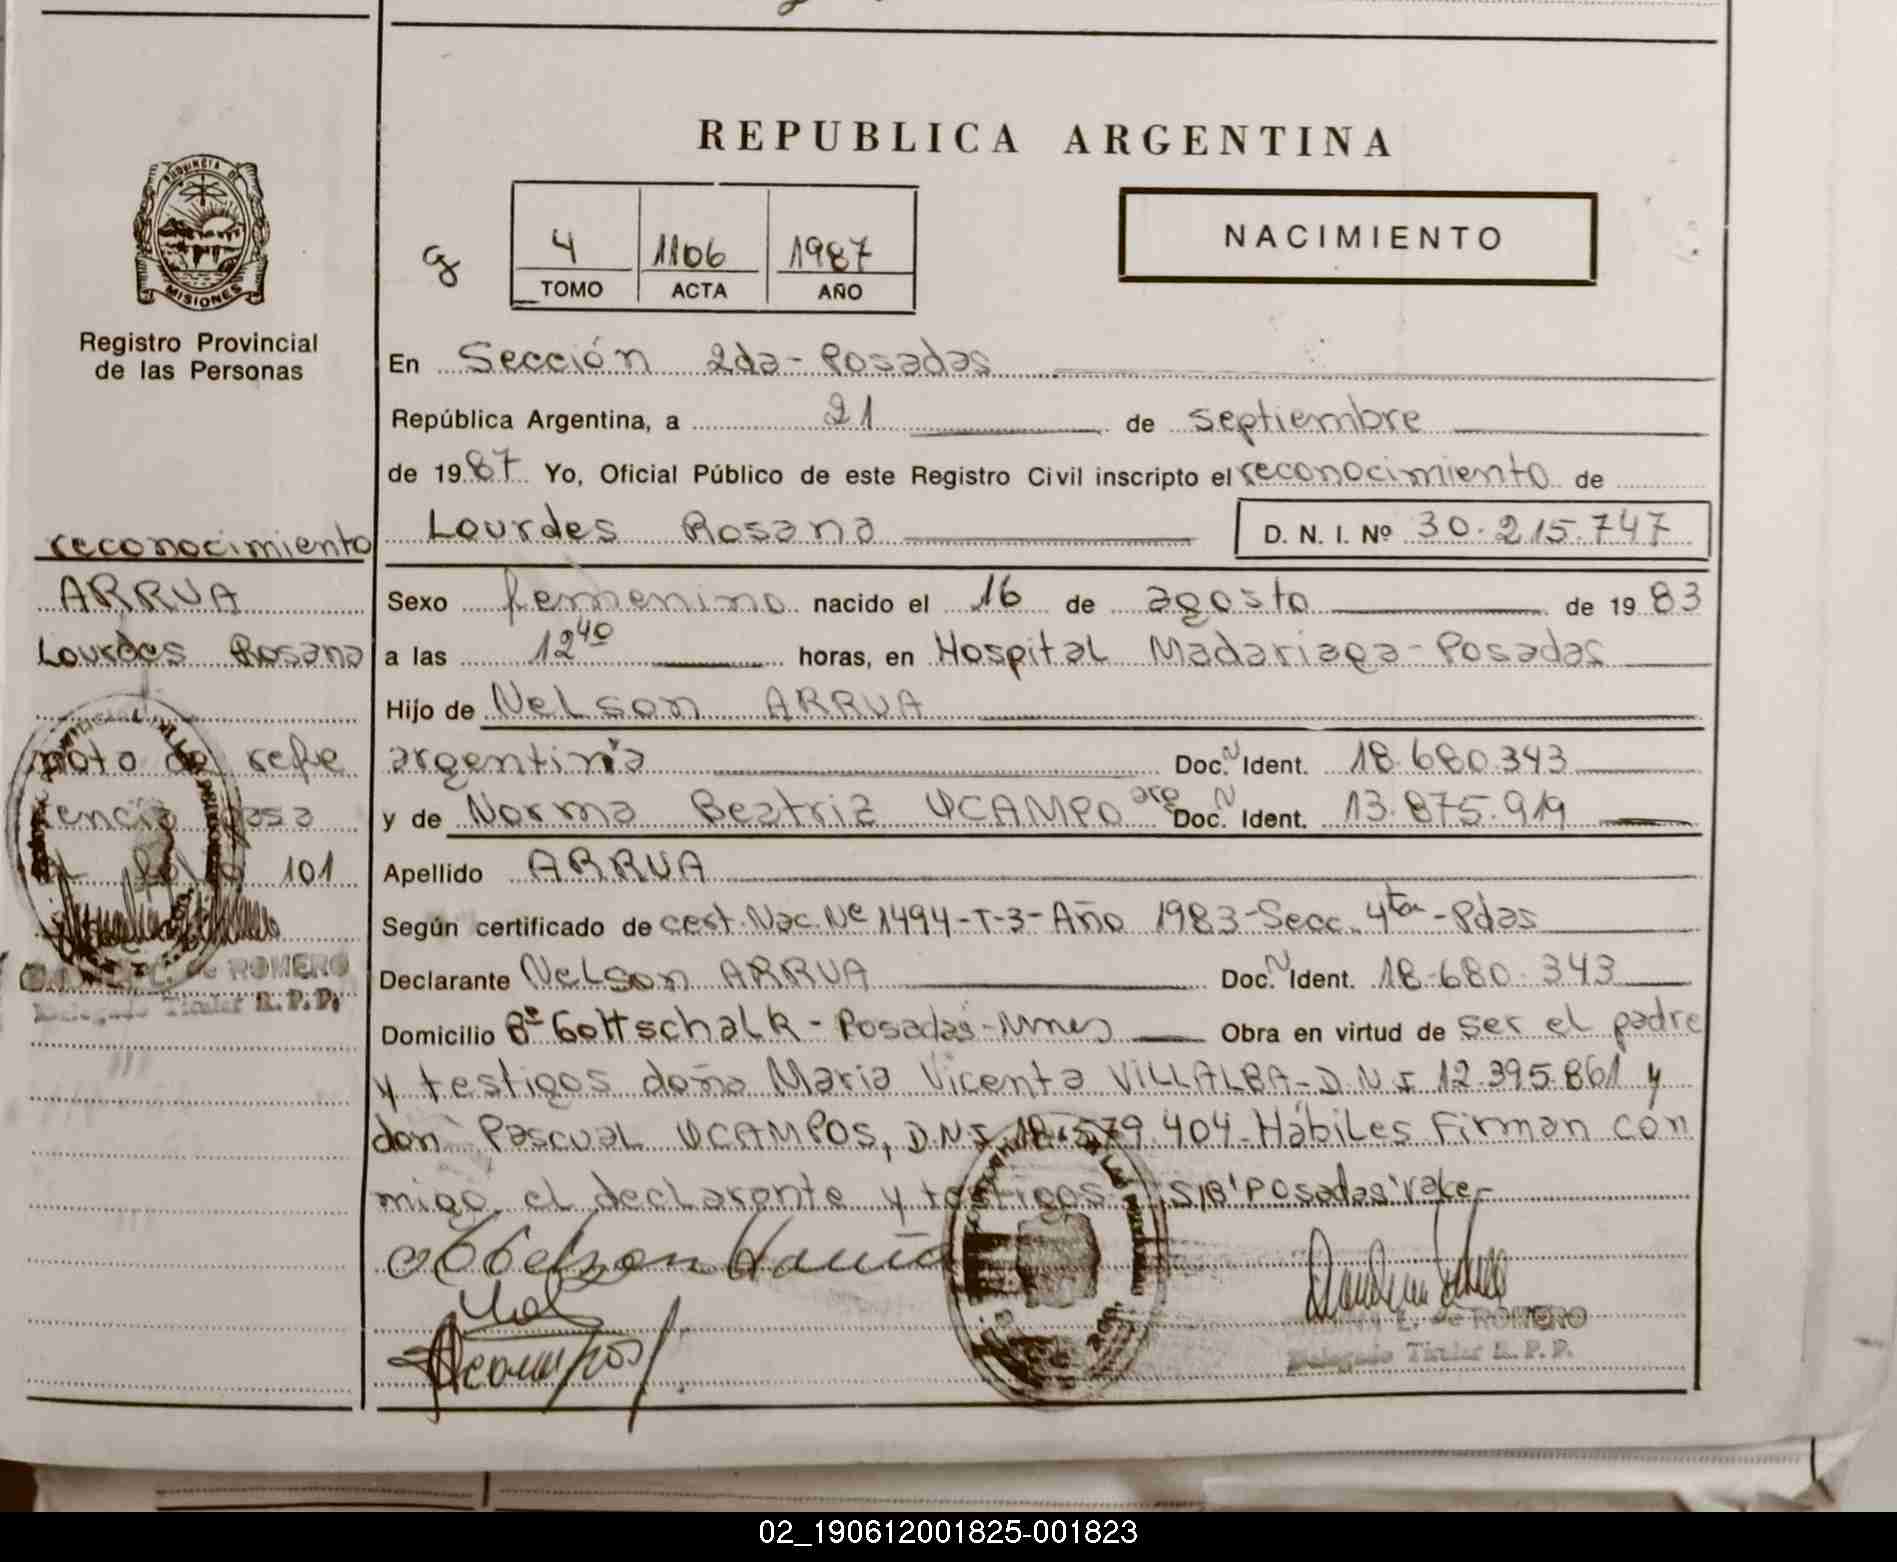 REPUBLICA ARGENTINA
PROVINCIA DE
MISIONES
Registro Provincial
de las Personas
4 1106 1987
TOMO ACTA AÑO
NACIMIENTO
En Sección 2da - Posadas
República Argentina, a 21 de septiembre
de 1987 Yo, Oficial Público de este Registro Civil inscripto el reconocimiento de
Lourdes Rosana D. N. I. Nº 30.215.747
reconocimiento
ARRUA
Lourdes Rosana
nota de refe
rencia pasa
al folio 101
de ROMERO
Delegado Titular R. P. P.
Sexo femenino nacido el 16 de agosto de 1983
a las 12 40 horas, en Hospital Madariaga - Posadas
Hijo de Nelson ARRUA
argentina Doc. N Ident. 18.680.343
y de Norma Beatriz OCAMPO arg Doc. N Ident. 13.875.919
Apellido ARRUA
Según certificado de cert. Nac. Nº 1494 - T-3 - Año 1983 - Secc. 4ta - Pdas
Declarante Nelson ARRUA Doc. N Ident. 18.680.343
Domicilio Bº Gottschalk - Posadas - Mnes Obra en virtud de ser el padre
y testigos doña Maria Vicenta VILLALBA - D.N.I 12.395.861 y
don Pascual OCAMPOS, D.N.I 404 - Hábiles Firman con
migo el declarante y testigos S/B "Posadas" vale -
L. de ROMERO
Delegado Titular R. P. P.
02_190612001825-001823